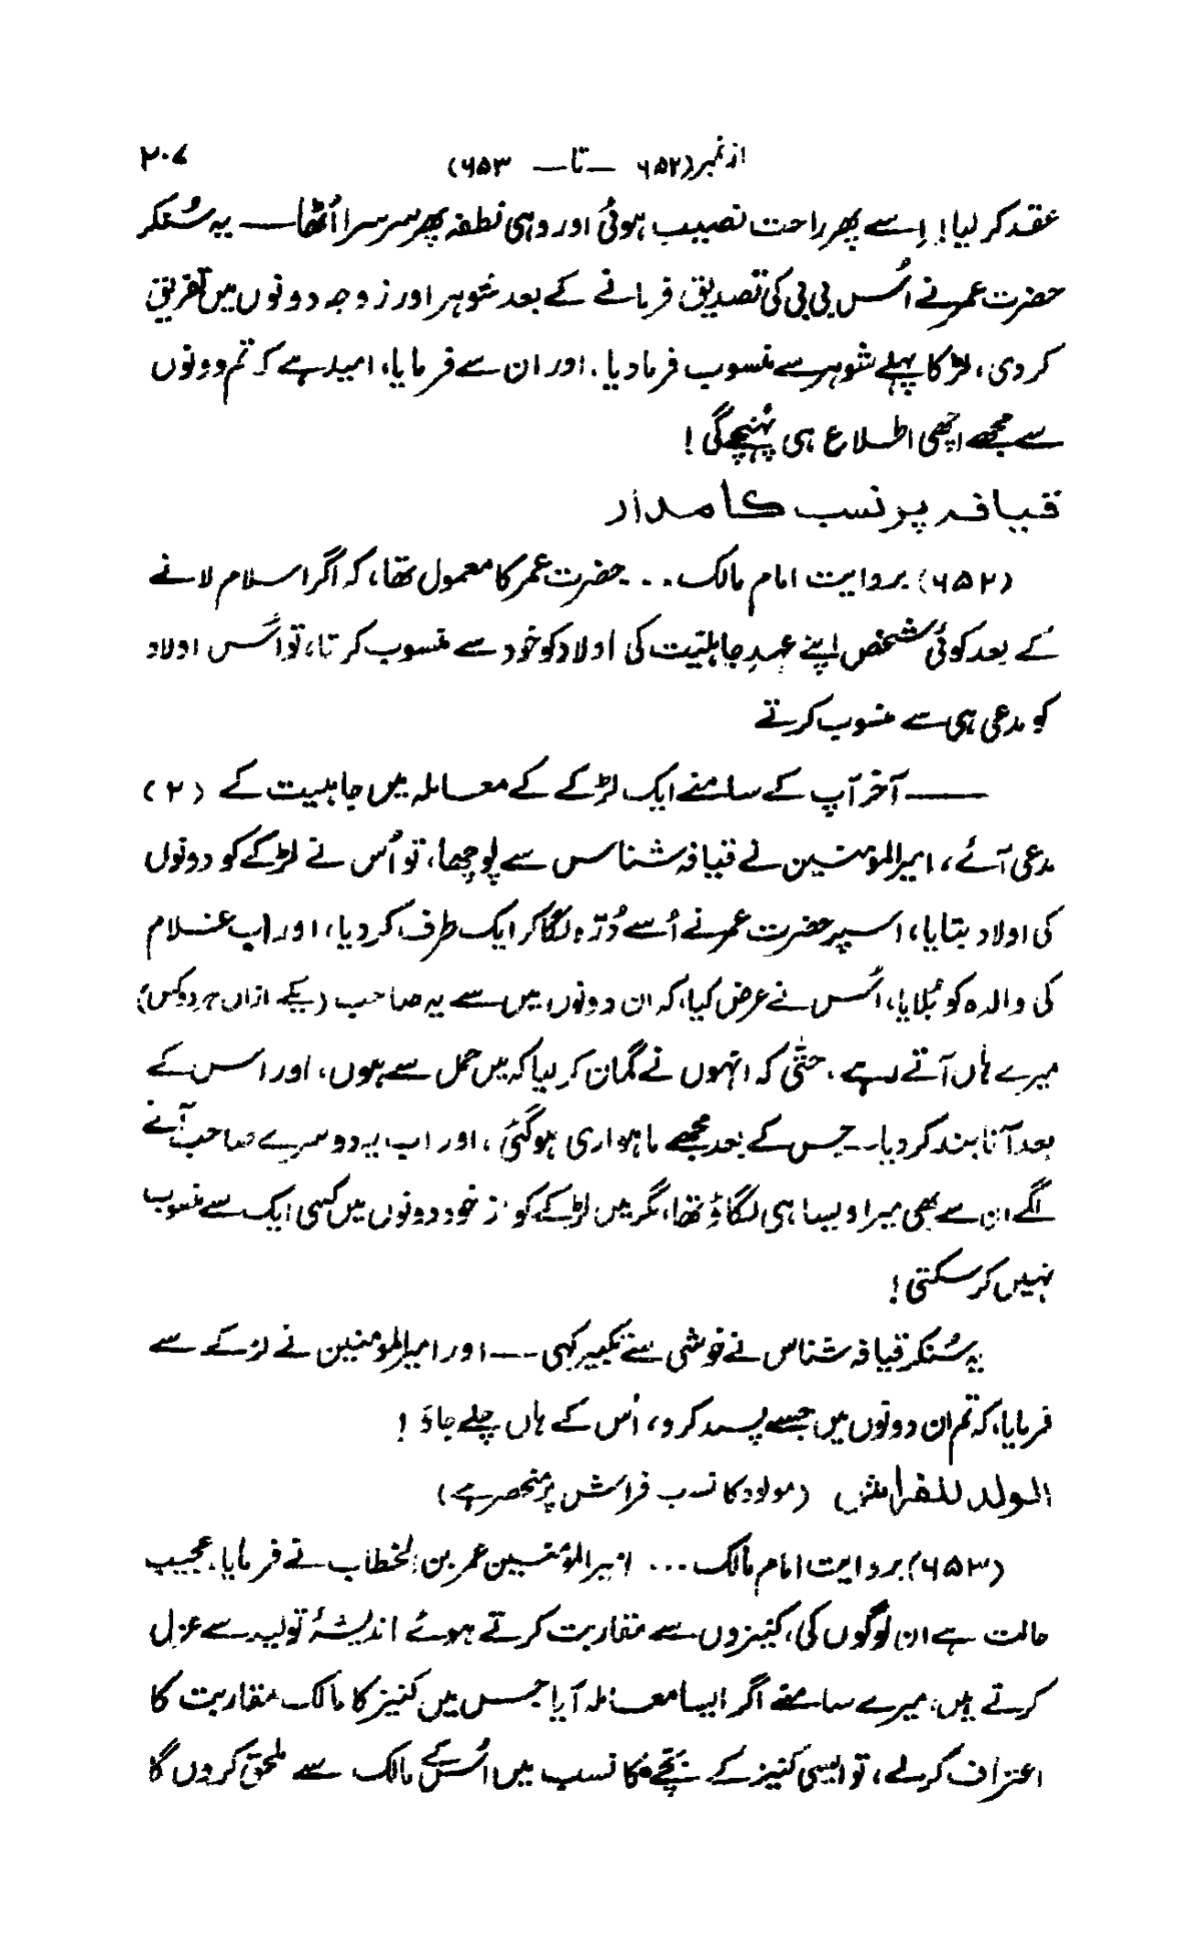 از نمبر (۶۵۲ — تا — ۶۵۳) ۲۰۷
عقد کر لیا! اِسے پھر راحت نصیب ہوئی اور وہی نطفہ پھر سر سرا اُٹھا — یہ سُنکر
حضرت عمر نے اُس بی بی کی تصدیق فرمانے کے بعد شوہر اور زوجہ دونوں میں تفریق
کر دی، لڑکا پہلے شوہر سے منسوب فرما دیا. اور ان سے فرمایا، امید ہے کہ تم دونوں
سے مجھے اچھی اطلاع ہی پہُنچے گی!
قیافہ پر نسب کا مدار
(۶۵۲) بروایت امام مالک... حضرت عمر کا معمول تھا، کہ اگر اسلام لانے
کے بعد کوئی شخص اپنے عہدِ جاہلیّت کی اولاد کو خود سے منسوب کرتا، تو اُس اولاد
کو مدعی ہی سے منسوب کرتے
— آخر آپ کے سامنے ایک لڑکے کے معاملہ میں جاہلیت کے (۲)
مدعی آئے، امیر المؤمنین نے قیافہ شناس سے پوچھا، تو اُس نے لڑکے کو دونوں
کی اولاد بتایا، اسپر حضرت عمر نے اُسے دُرّہ لگا کر ایک طرف کر دیا، اور اب غلام
کی والدہ کو بُلایا، اُس نے عرض کیا، کہ ان دونوں میں سے یہ صاحب (یکے ازاں ہر دوکس)
میرے ہاں آتے رہے، حتّٰی کہ انہوں نے گمان کر لیا کہ میں حمل سے ہوں، اور اس کے
بعد آنا بند کر دیا۔ جس کے بعد مجھے ماہواری ہو گئی، اور اب یہ دوسرے صاحب آنے
لگے ان سے بھی میرا ویسا ہی لگاؤ تھا، مگر میں لڑکے کو از خود دونوں میں کسی ایک سے منسوب
نہیں کر سکتی!
یہ سُنکر قیافہ شناس نے خوشی سے تکبیر کہی -— اور امیر المؤمنین نے لڑکے سے
فرمایا، کہ تم ان دونوں میں جسے پسند کرو، اُس کے ہاں چلے جاؤ!
الولد للفراش (مولود کا نسب فراش پر منحصر ہے)
(۶۵۳) بروایت امام مالک... امیر المؤمنین عمر بن الخطاب نے فرمایا، عجیب
حالت ہے ان لوگوں کی، کنیزوں سے مقاربت کرتے ہوئے اندیشۂ تولید سے عزل
کرتے ہیں، میرے سامنے اگر ایسا معاملہ آیا جس میں کنیز کا مالک مقاربت کا
اعتراف کر لے، تو ایسی کنیز کے بچّے کا نسب میں اُس کے مالک سے ملحق کر دوں گا